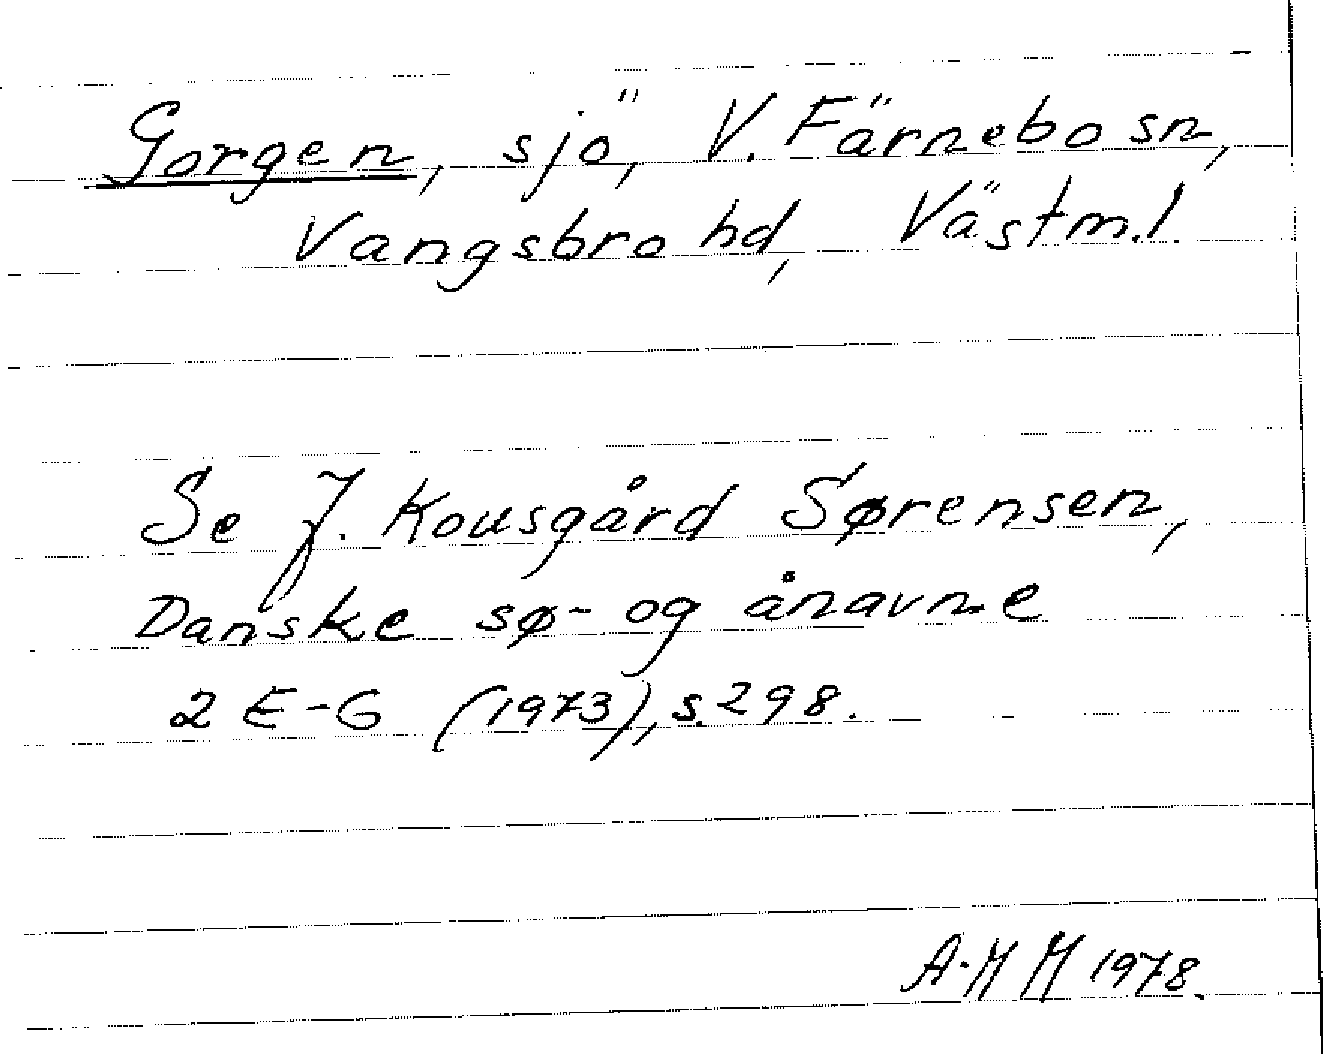 Gorgen, sjö, V. Färnebo sn,
Vangsbro hd, Västm.l
Se J. Kousgård Sørensen,
Danske sø- og ånavne
2 E-G (1973), s. 298.
A-M M 1978.